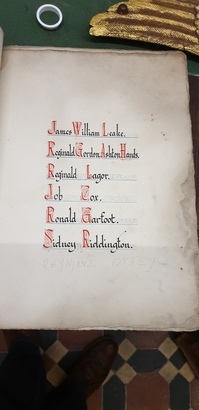 James William Leake.
Reginald Gordon Ashton Hands.
Reginald Lagor.
Job Cox.
Ronald Garfoot.
Sidney Riddington.